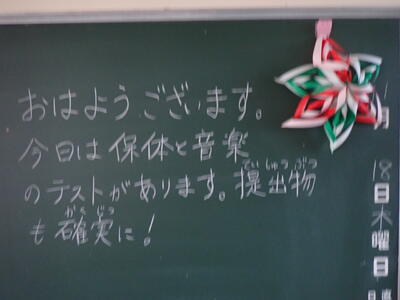 おはようございます。
今日は保体と音楽
のテストがあります。提出物
ていしゅつぶつ
も確実に!
かくじつ
月
18
日
木
曜
日
日直